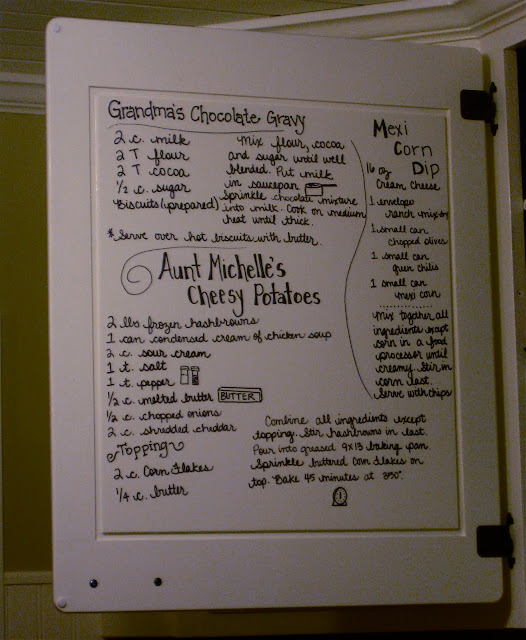 Grandma's Chocolate Gravy
2 c. milk
2 T flour
2 T cocoa
1/2 c. sugar
Biscuits (prepared)
Mix flour, cocoa
and sugar until well
blended. Put milk
in saucepan
Sprinkle chocolate mixture
into milk. Cook on medium
heat until thick.
* Serve over hot biscuits with butter.
Mexi
Corn
Dip
16 oz
Cream Cheese
1 envelope
ranch mix dry
1 small can
chopped olives
1 small can
green chilis
1 small can
mexi corn
Mix together all
ingredients except
corn in a food
processor until
creamy. Stir in
corn last.
Serve with chips
Aunt Michelle's
Cheesy Potatoes
2 lbs frozen hashbrowns
1 can condensed cream of chicken soup
2 c. sour cream
1 t. salt
1 t. pepper
1/2 c. melted butter
BUTTER
1/2 c. chopped onions
2 c. shredded cheddar
Topping
2 c. Corn Flakes
1/4 c. butter
Combine all ingredients except
topping. Stir hashbrowns in last.
Pour into greased 9x13 baking pan.
Sprinkle buttered Corn Flakes on
top. Bake 45 minutes at 350°.